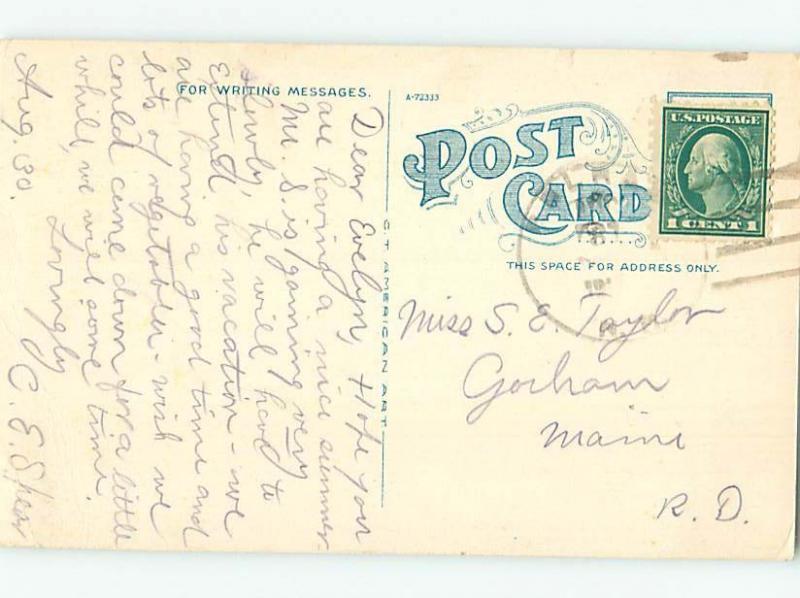 FOR WRITING MESSAGES.
Dear Evelyn, Hope you
are having a nice summer.
Mr. S. is gaining very
slowly, he will have to
Extend his vacation - we
are having a good time and
lots of vegetables - wish we
could come down for a little
while, we will some time.
Lovingly
Aug. 30. C. E. Shear
C. T. AMERICAN ART
A-72333
POST
CARD
THIS SPACE FOR ADDRESS ONLY.
U.S. POSTAGE
1 CENT 1
Miss S. E. Taylor
Gorham
Maine
R. D.